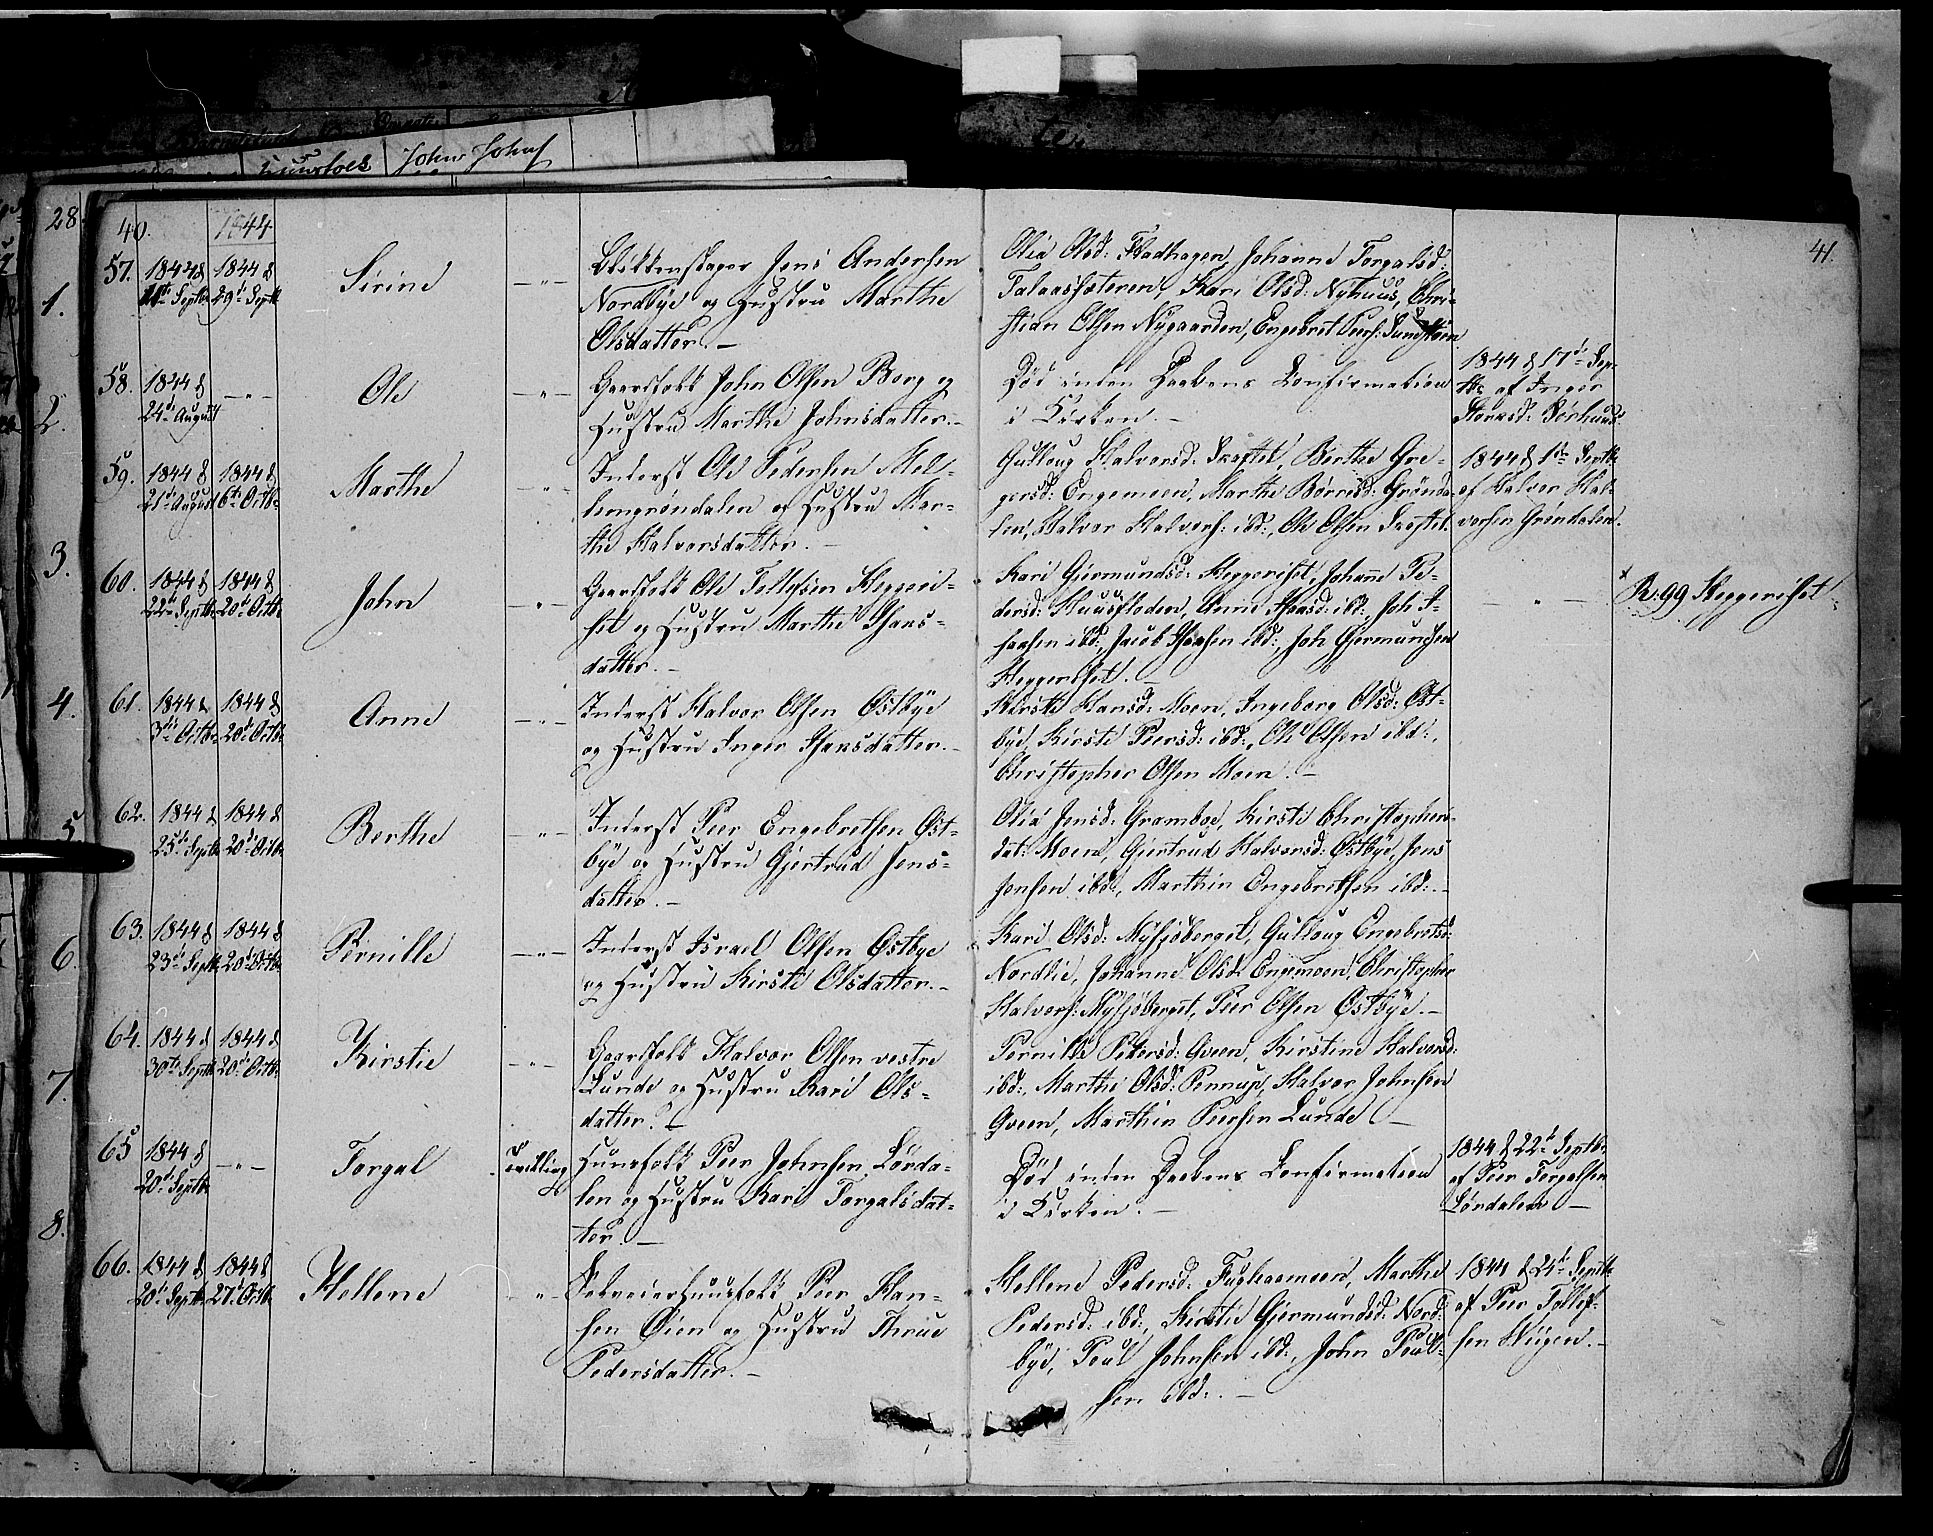 Huusfolk
John Johns
ter
28
1.
2.
3.
4.
5
6.
7.
8.
40.
1844
41.
57.
1844 d
Septbr
1844 d
29de Septbr
Sirine
Jens Andersen
Nordbye og Hustru Marthe
Olsdatter. -
Olia Olsd: Fladhagen, Johanne Torgalsd:
Talaassæteren, Kari Olsd: Nyhuus, Chri-
stian Olsen Nygaarden, Engebret Peers: Sundmoen
58.
1844 d
24de August
- " -
Ole
- " -
Gaardfolk John Olsen Borg og
Hustru Marthe Johnsdatter. -
Død inden Daabens Confirmation
i Kirken. -
1844 d 17de Sep-
tbr af Inger
Sørhuus.
59.
1844 d
21de August
1844 d
6te Octbr
Marthe
- " -
Inderst Ole Pedersen Mel-
lemgrøndalen og Hustru Mar-
the Halvorsdatter. -
Gulloug Halvorsd: Skoftet, Berthe Gre-
gersd: Engemoen, Marthe Børresd: Grønda-
len, Halvor Halvors: ibd:, Ole Olsen Skoftet.
1844 d 1ste Septbr
af Halvor Hal-
vorsen Grøndalen.
60.
1844 d
22de Septbr
1844 d
20de Octbr
John
- " -
Gaardfolk Ole Tollefsen Heggeri-
set og Hustru Marthe Hans-
datter. -
Kari Gjermundsd: Heggeriset, Johanne Pe-
dersd: Huusfloden, Anne ibd:, Joh: I-
saksen ibd:, Jacob Isaksen ibd:, Joh: Gjermundsen
Heggeriset. -
- " -
R: 99 Heggeriset.
61.
1844 d
3die Octbr
1844 d
20de Octbr
Anne
- " -
Inderst Halvor Olsen Østbye
og Hustru Inger Hansdatter. -
Kirsti Hansd: Moen, Ingeborg Olsd: Øst-
bye, Kirsti Peersd: ibd:, Ole Olsen ibd:,
Christopher Olsen Moen. -
62.
1844 d
25de Septbr
1844 d
20de Octbr
Berthe
- " -
Inderst Peer Engebretsen Øst-
bye og Hustru Gjertrud Jens-
datter. -
Olia Jensd: Gramboe, Kirsti Christophers-
dat: Moen, Gjertrud Halvorsd: Østbye, Jens
Jensen ibd:, Marthin Engebretsen ibd: -
63.
1844 d
23de Septbr
1844 d
20de Octbr
Pernille
- " -
Inderst Israel Olsen Østbye
og Hustru Kirsti Olsdatter. -
Kari Olsd: Nysjøberget, Gulloug Engebretsd:
Nordlie, Johanne Olsd: Engemoen, Christopher
Halvors: Nysjøberget, Peer Olsen Østbye. -
64.
1844 d
30te Septbr
1844 d
20de Octbr
Kirstie
- " -
Gaardfolk Halvor Olsen vestre
Lunde og Hustru Kari Ols-
datter. -
Pernille Petersd: Gveen, Kirstine Halvorsd:
ibd:, Marthe Olsd: Pennup, Halvor Johnsen
Gveen, Marthin Peersen Lunde. -
65
1844 d
20de Septbr
- " -
Torgal
Tvilling
Huusfolk Peer Johnsen Lørda-
len og Hustru Kari Torgalsdat-
ter. -
Død inden Daabens Confirmation
i Kirken. -
1844 d 22de Septbr
af Peer Torgalsen
Lørdalen -
66.
1844 d
20de Septbr
1844 d
27de Octbr
Hellene
- " -
Selveierhuusfolk Peer Han-
sen Øien og Hustru Thrine
Pedersdatter. -
Hellene Pedersd: Fughaamoen, Marthe
Pedersd: ibd:, Kirstie Gjermundsd: Nord-
bye, Poul Johnsen ibd:, John Poul-
sen ibd: -
1844 d 24de Septbr
af Peer Tollef-
sen Viigen. -